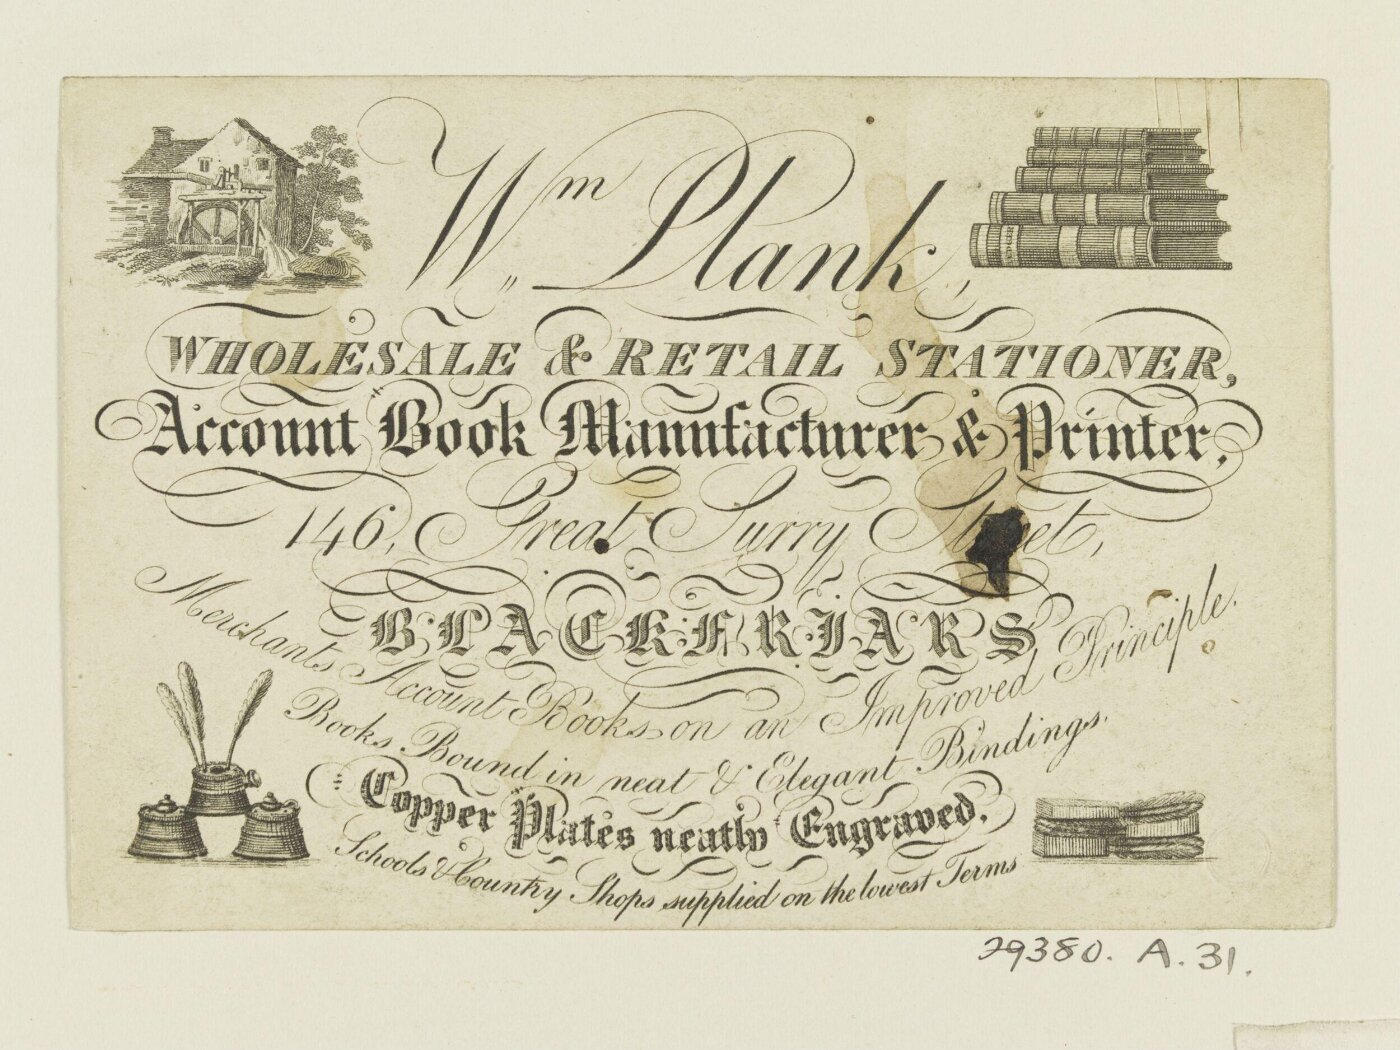 Wm Plank,
WHOLESALE & RETAIL STATIONER,
Account Book Manufacturer & Printer,
146, Great Surry Street,
BLACKFRIARS
Merchants Account Books on an Improved Principle.
Books Bound in neat & Elegant Bindings.
Copper Plates neatly Engraved.
Schools & Country Shops supplied on the lowest Terms
29380. A. 31.